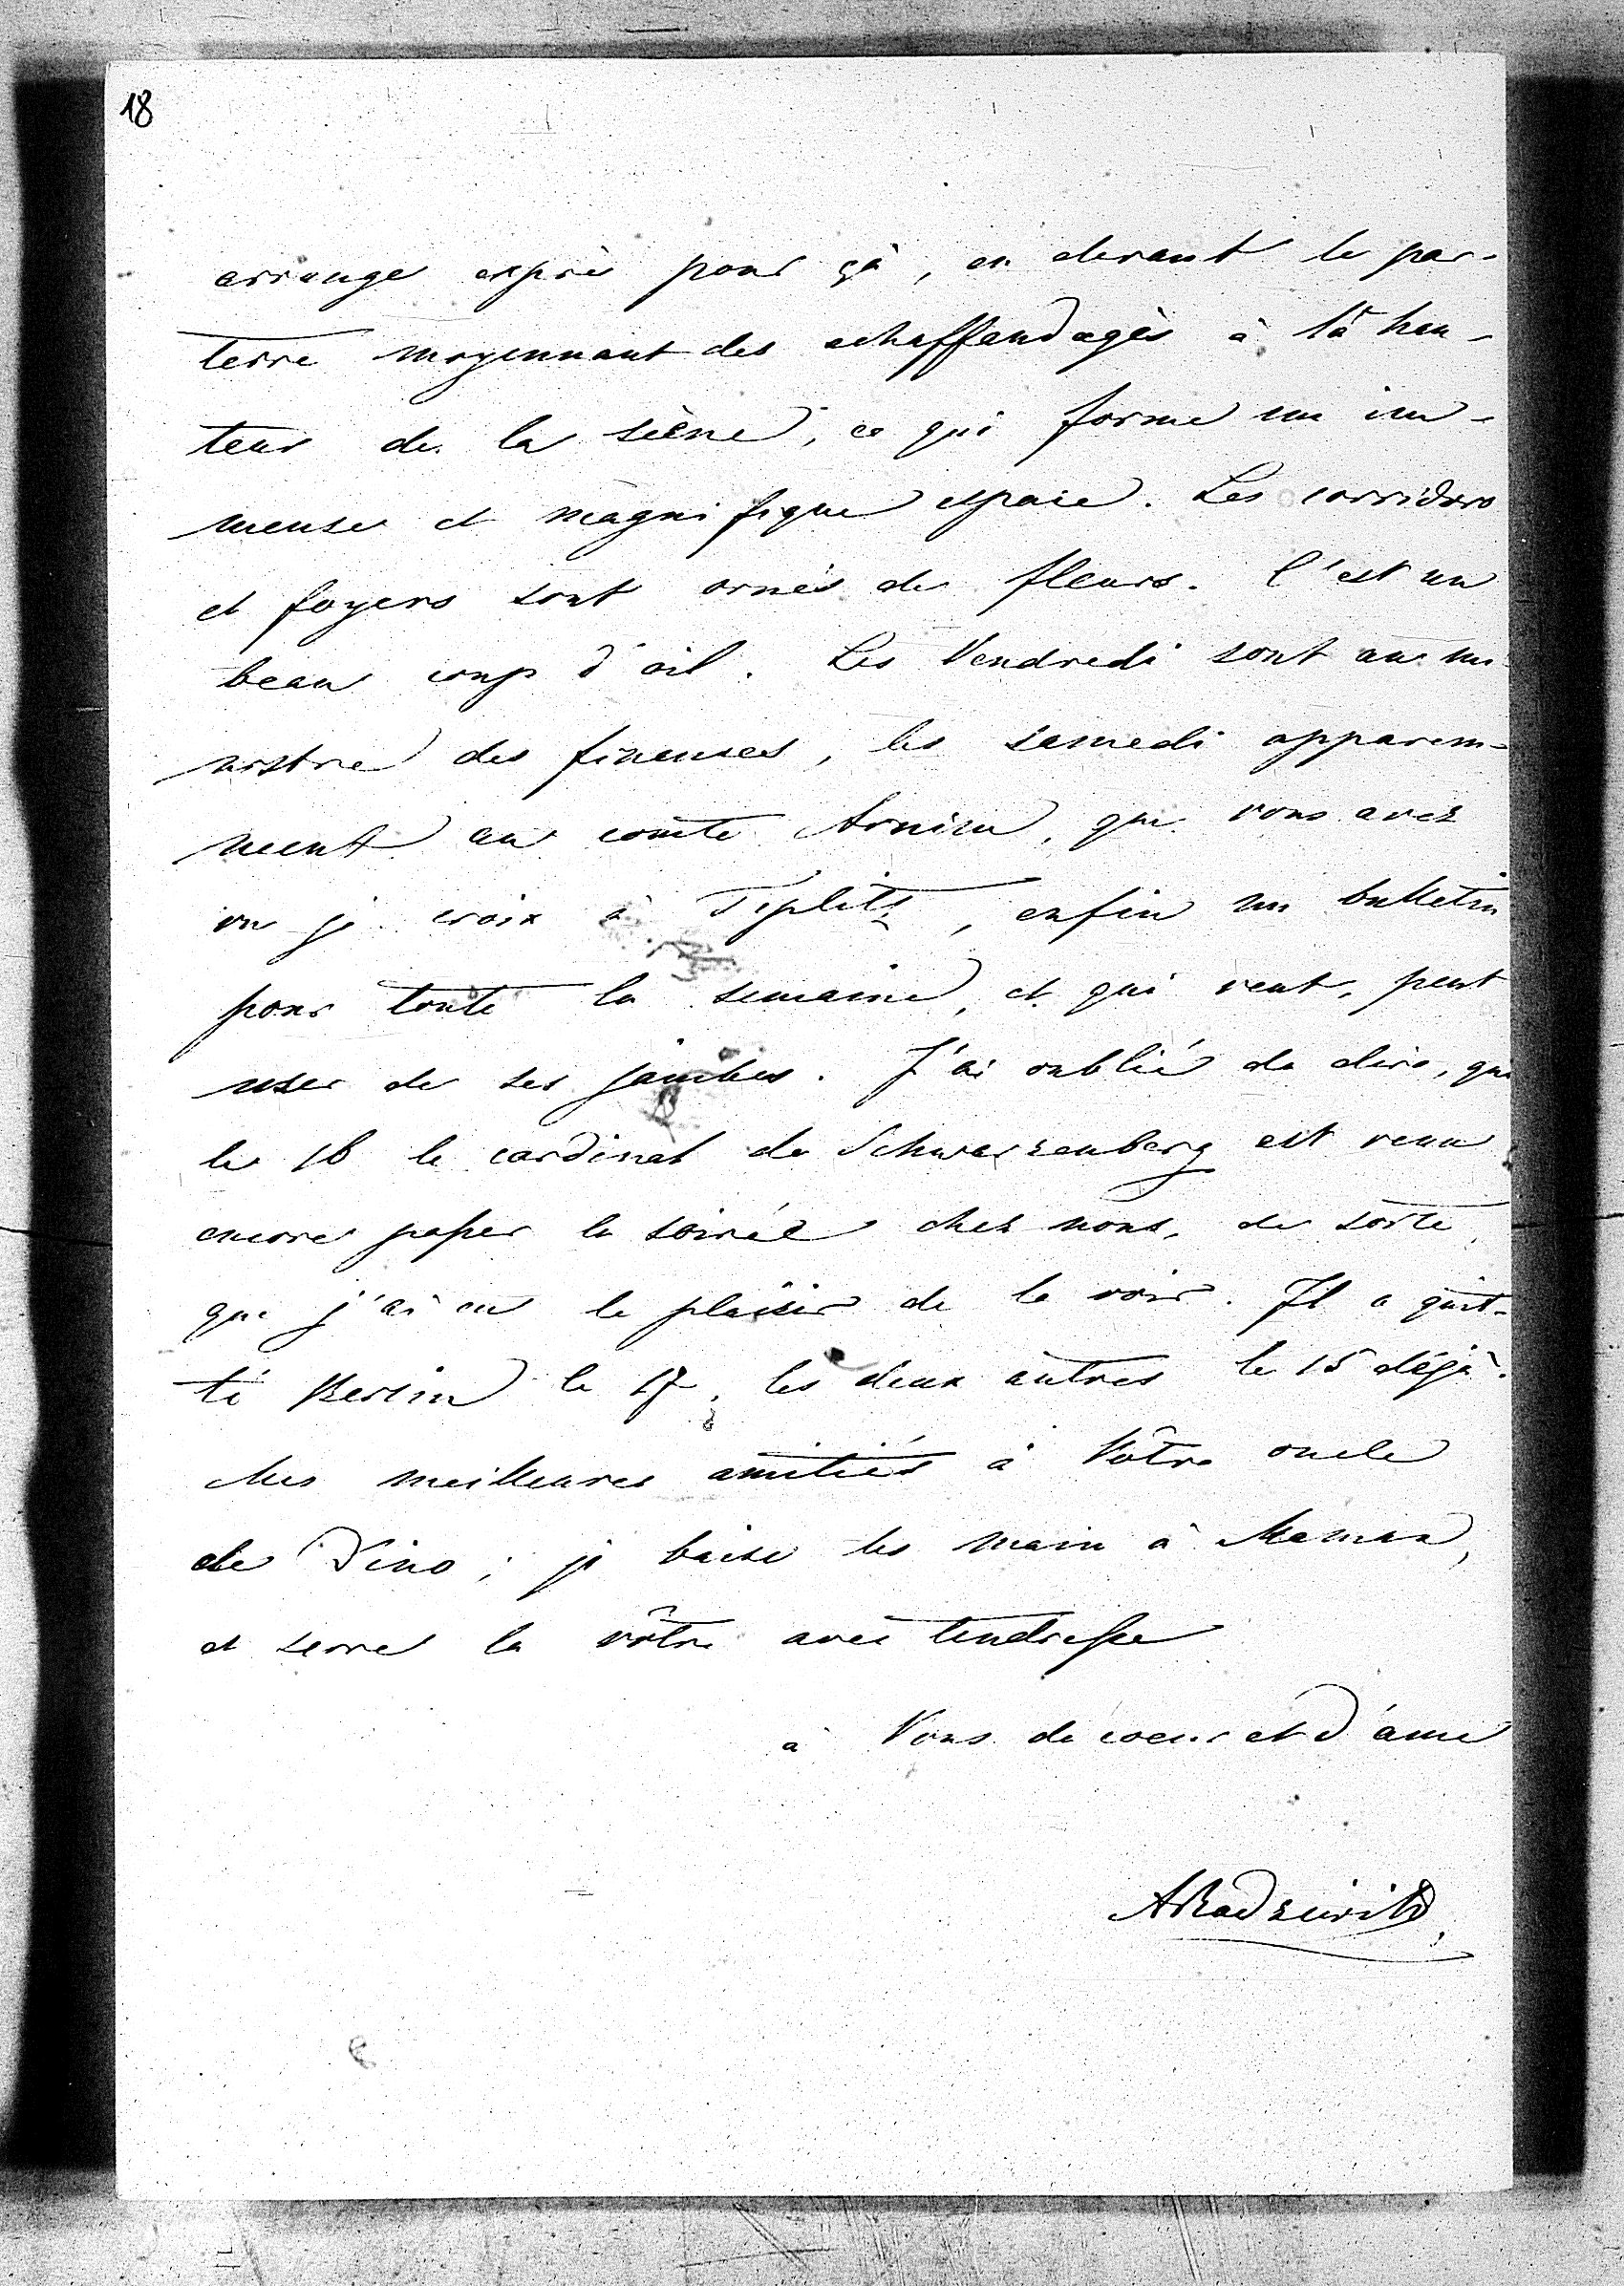 18
arrange exprès pour çà, en elevant le par-
terre moyennant des echaffendagès à la hau-
teur de la scène, ce qui forme un im-
mense et magnifique espace. Les corridors
et foyers sont ornés de fleurs. C'est un
beau coup d'œil. Les Vendredi sont au mi-
nistre des finances, les samedi apparem-
ment au comte Arnim, que vous avez
vu je crois à Teplitz, enfin un bulletin
pour toute la semaine, et qui veut, peut
user de ses jambes. J'ai oublié de dire, que
le 16 le cardinal de Schwarzenberg est venu
encore passer la soirée chez nous, de sorte,
que j'ai eu le plaisir de le voir. Il a quit-
té Berlin le 17, les deux autres le 15 déjà.
Mes meilleures amitiés à Vôtre oncle
de Dino; je baise les main à Maman,
et serre la vôtre avec tendresse
à Vous de coeur et d'ame
ARadziwill